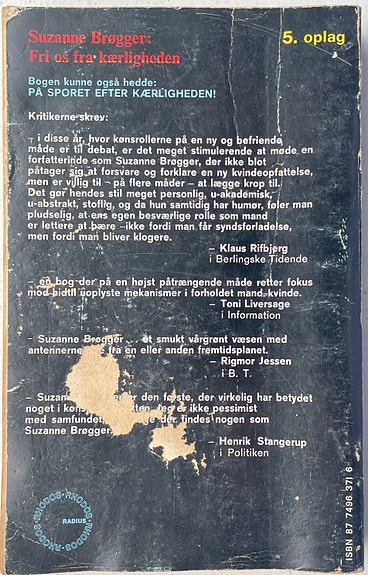 Suzanne Brøgger:
5. oplag
Fri os fra kærligheden
Bogen kunne også hedde:
PÅ SPORET EFTER KÆRLIGHEDEN!
Kritikerne skrev:
– i disse år, hvor kønsrollerne på en ny og befriende
måde er til debat, er det meget stimulerende at møde en
forfatterinde som Suzanne Brøgger, der ikke blot
påtager sig at forsvare og forklare en ny kvindeopfattelse,
men er villig til – på flere måder – at lægge krop til.
Det gør hendes stil meget personlig, u-akademisk,
u-abstrakt, stoflig, og da hun samtidig har humør, føler man
pludselig, at ens egen besværlige rolle som mand
er lettere at bære –ikke fordi man får syndsforladelse,
men fordi man bliver klogere.
– Klaus Rifbjerg
i Berlingske Tidende
– en bog der på en højst påtrængende måde retter fokus
mod hidtil uoplyste mekanismer i forholdet mand, kvinde.
– Toni Liversage
i Information
– Suzanne Brøgger et smukt vårgrønt væsen med
antennerne fra en eller anden fremtidsplanet.
– Rigmor Jessen
i B. T.
– den første, der virkelig har betydet
noget i Jeg er ikke pessimist
med samfundet, der findes nogen som
Suzanne Brøgger.
– Henrik Stangerup
i Politiken
RHODOS RHODOS RHODOS RHODOS
RADIUS
ISBN 87 7496 371 6